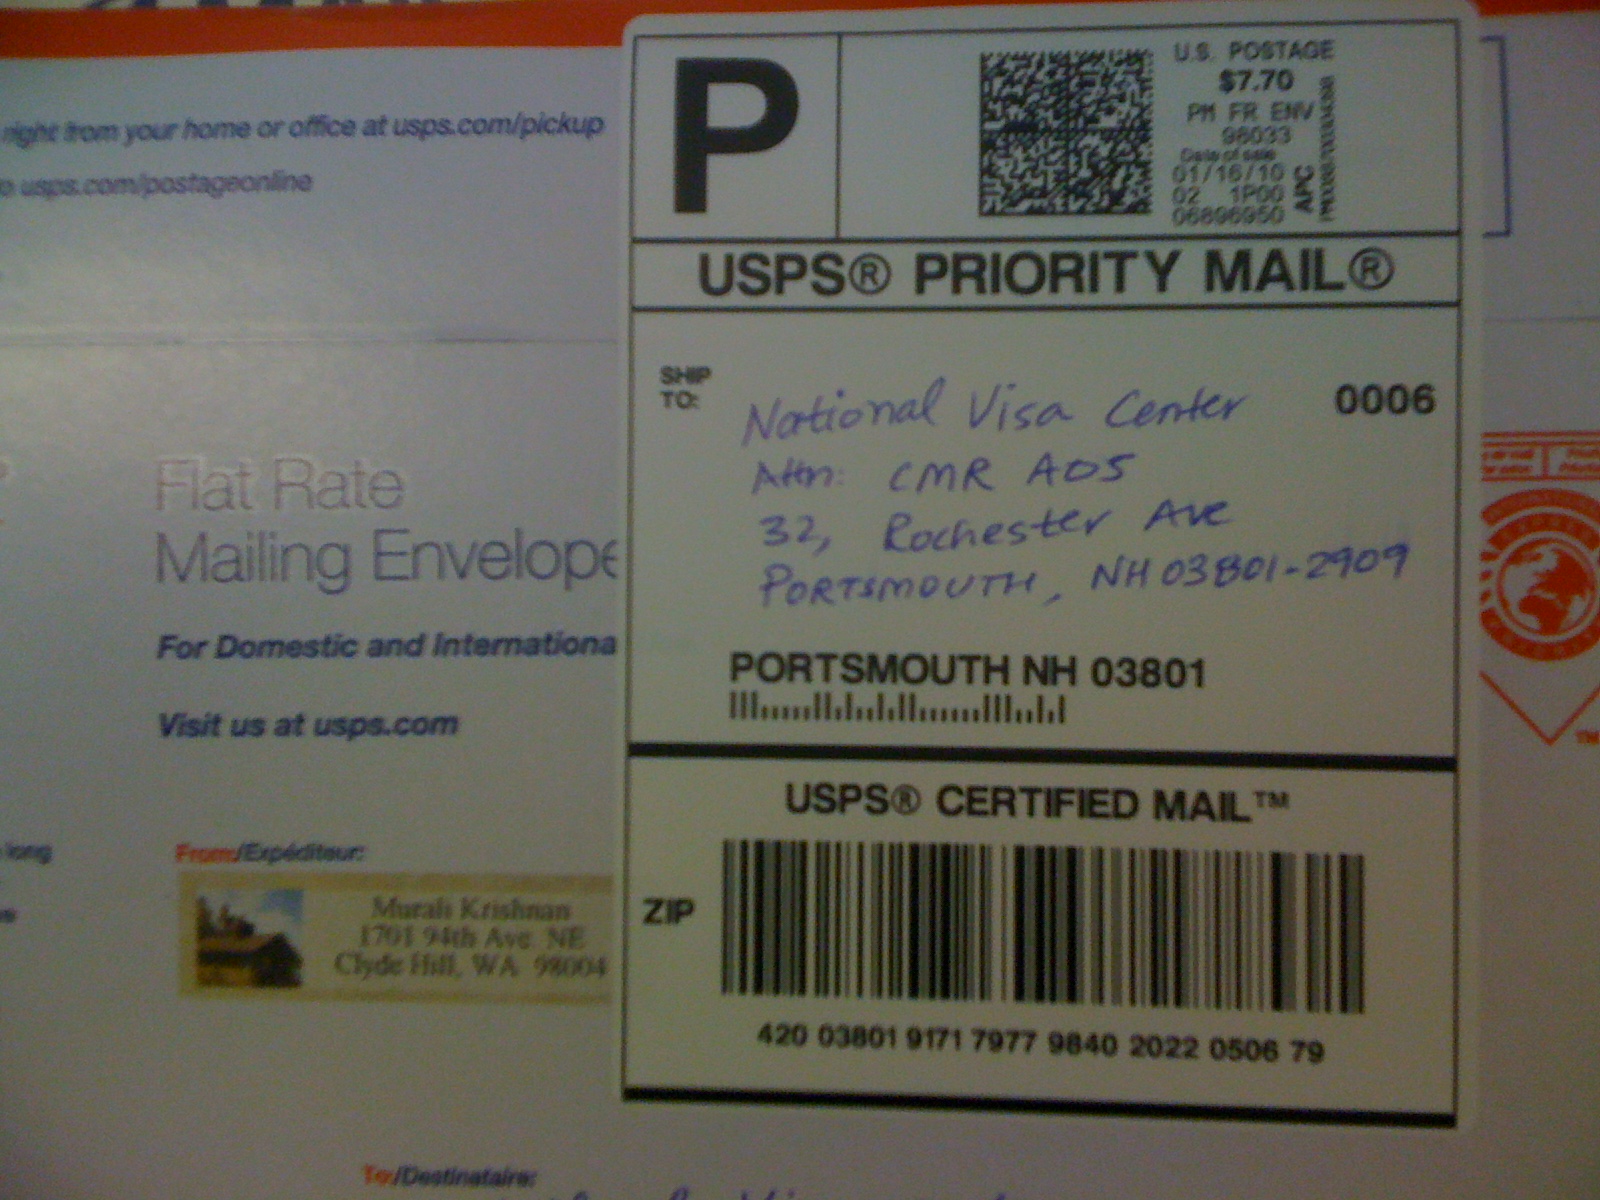 right from your home or office at usps.com/pickup
usps.com/postageonline
Flat Rate
Mailing Envelope
For Domestic and Internationa
Visit us at usps.com
From/Expéditeur:
Murali Krishnan
1701 94th Ave. NE
Clyde Hill, WA 98004
To/Destinataire:
long
P
U.S. POSTAGE
$7.70
PM FR ENV
98033
Date of sale
01/16/10
02 1P00
06896950
APC
USPS® PRIORITY MAIL®
0006
SHIP
TO:
National Visa Center
Attn: CMR AOS
32, Rochester Ave
PORTSMOUTH, NH 03801-2909
PORTSMOUTH NH 03801
USPS® CERTIFIED MAIL™
ZIP
420 03801 9171 7977 9840 2022 0506 79
TM